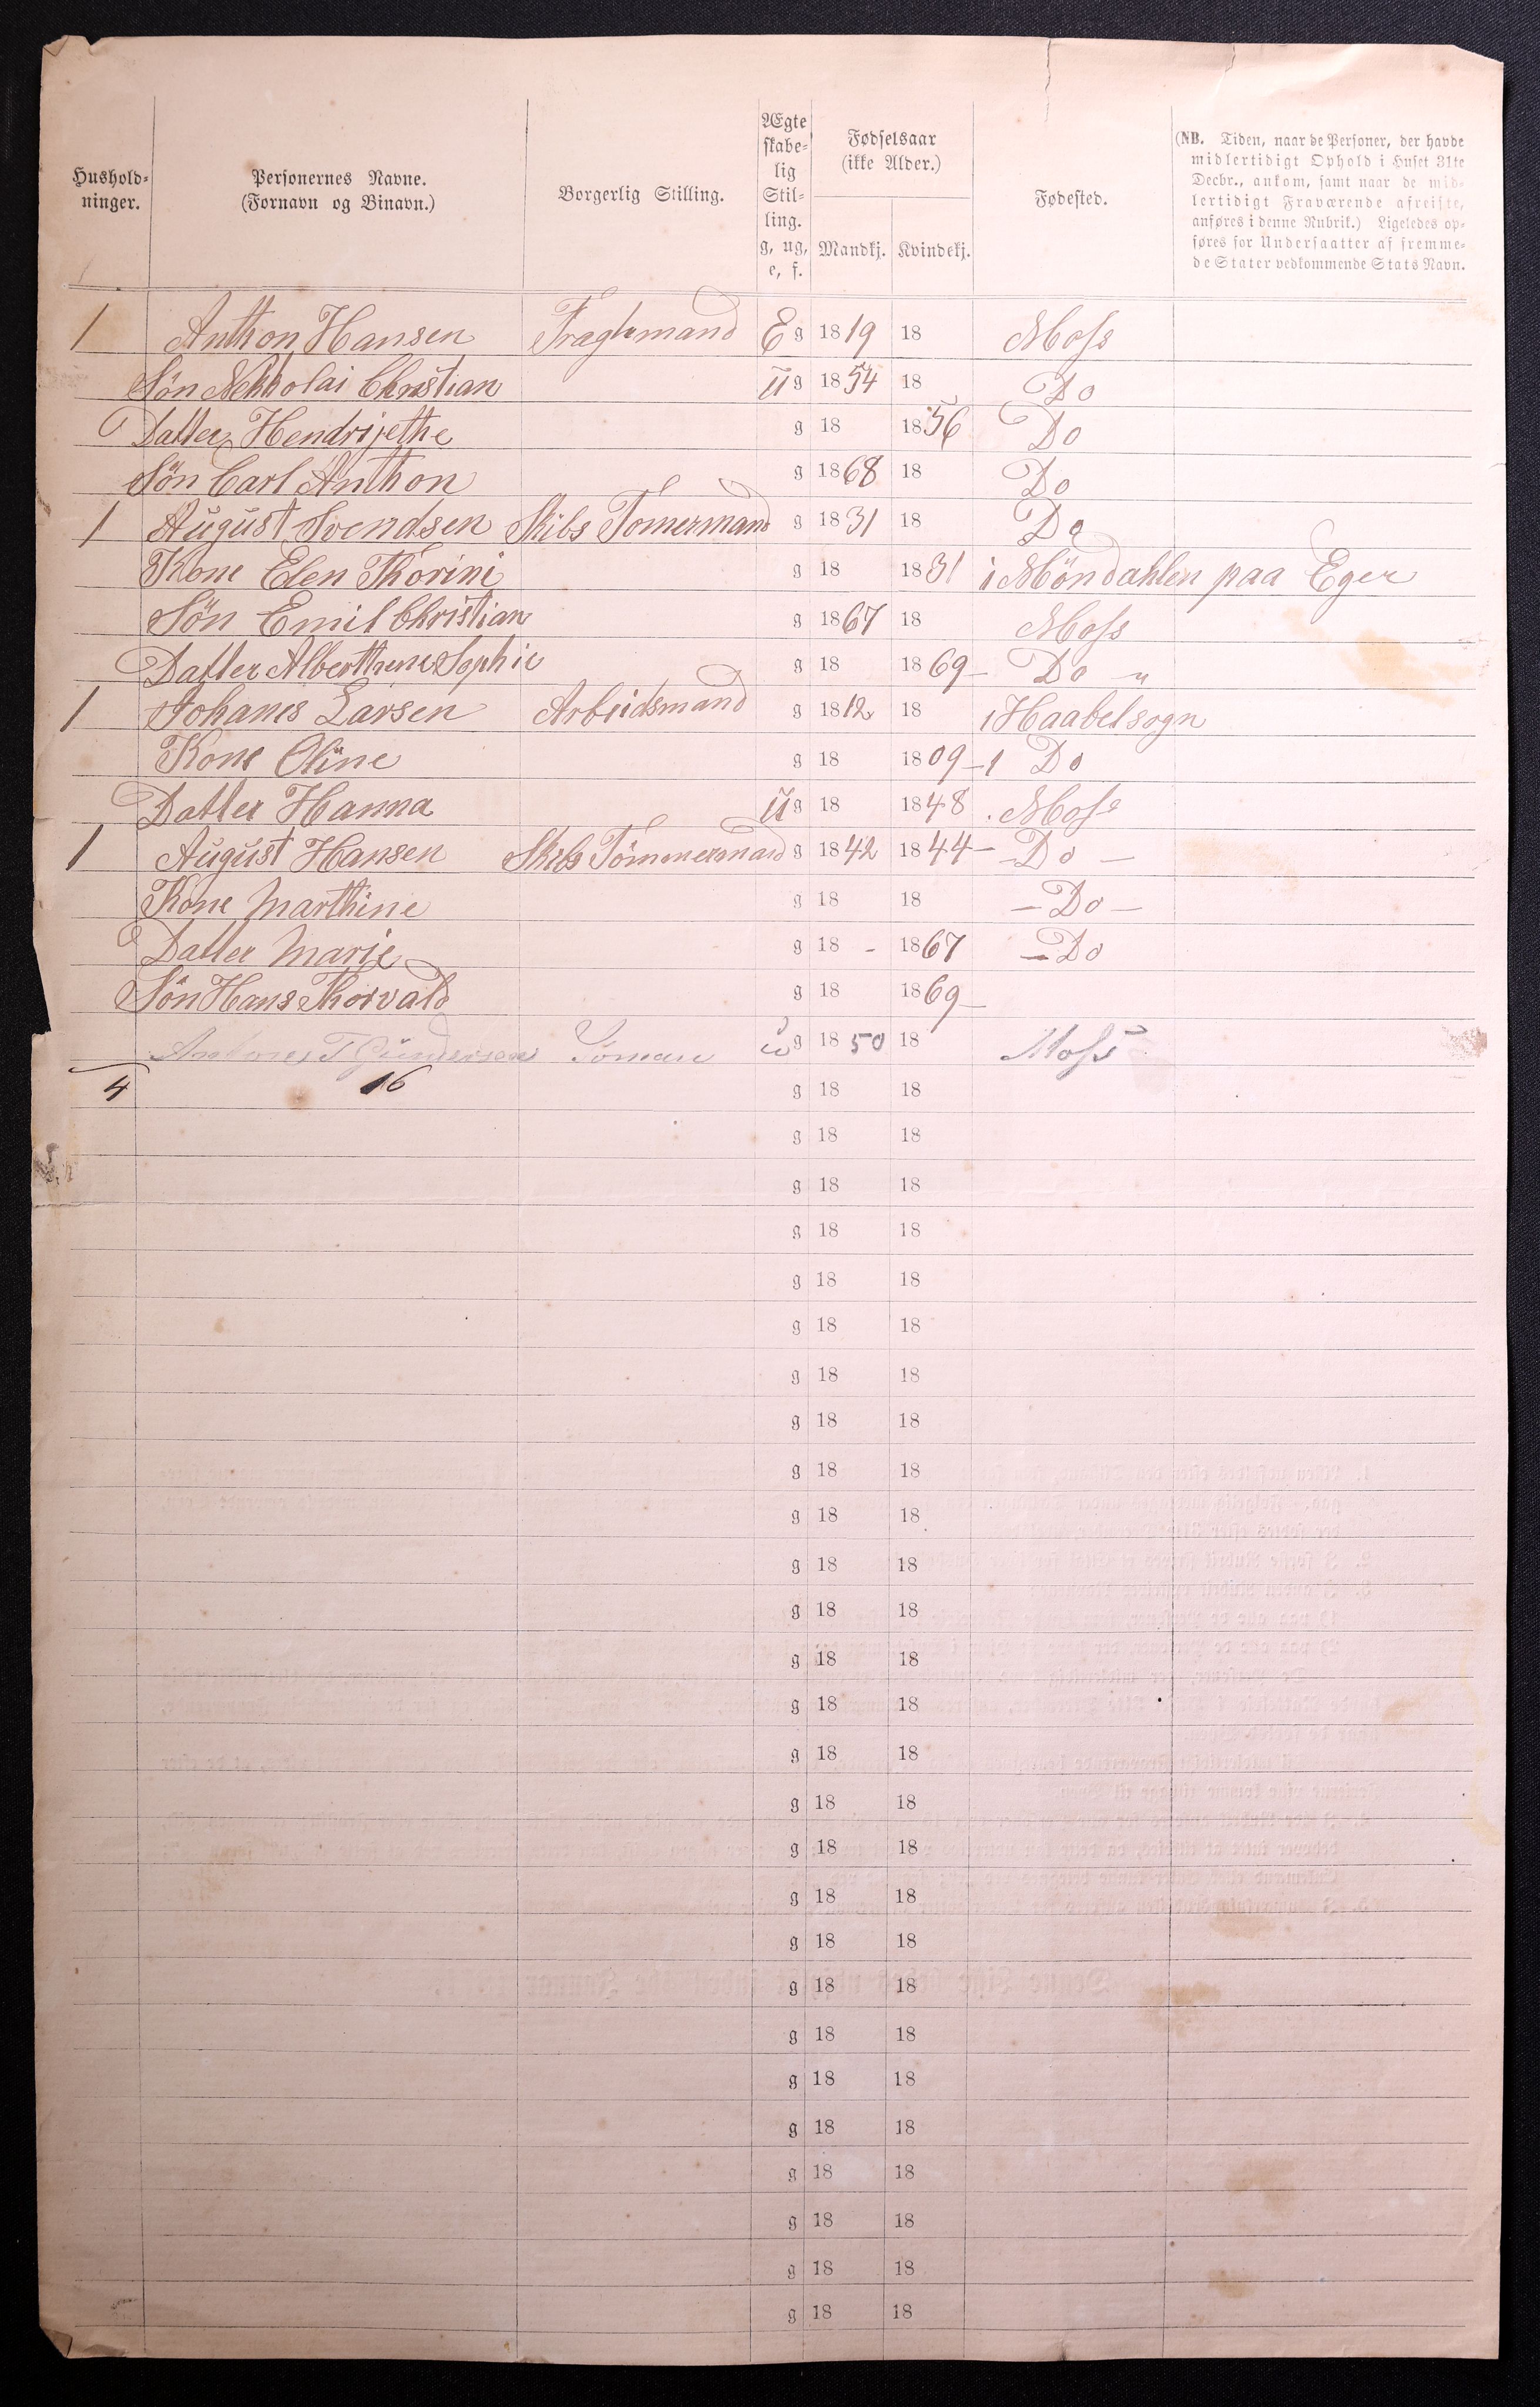 Hushold-
ninger.
Personernes Navne.
(Fornavn og Binavn.)
Borgerlig Stilling.
Ægte
skabe-
lig
Stil-
ling.
g, ug,
e, f.
Fødselsaar
(ikke Alder.)
Mandkj. Kvindekj.
Fødested.
(NB. Tiden, naar de Personer, der havde
midlertidigt Ophold i Huset 31te
Decbr., ankom, samt naar de mid-
lertidigt Fraværende afreiste,
anføres i denne Rubrik.) Ligeledes op-
føres for Undersaatter af fremme-
de Stater vedkommende Stats Navn.
1 Anthon Hansen Fragtemand E g 1819 18 Moss
Sön Nekkolai Christian U g 1854 18 Do
Datter Hendrijethe g 18 1856 Do
Sön Carl Anthon g 1868 18 Do
1 August Svendsen Skibs Tömermand g 1831 18 Do
Kone Elen Thorini g 18 1831 i Möndahlen paa Eger
Sön Emil Christian g 1867 18 Moss
Datter Alberthine Sophie g 18 1869 - Do - "
1 Johanes Larsen Arbeidsmand g 1812 18 i Haabel sogn
Kone Oline g 18 1809 - i Do
Datter Hanna U g 18 1848 . Moss
1 August Hansen Skibs Tömmermand g 1842 1844 - - Do -
Kone Marthine g 18 18 - Do -
Datter Marie g 18 - 1867 - Do
Sön Hans Thorvald g 18 1869 -
T Gundersen Söman u g 1850 18 Moss
4 16 g 18 18
g 18 18
g 18 18
g 18 18
g 18 18
g 18 18
g 18 18
g 18 18
g 18 18
g 18 18
g 18 18
g 18 18
g 18 18
g 18 18
g 18 18
g 18 18
g 18 18
g 18 18
g 18 18
g 18 18
g 18 18
g 18 18
g 18 18
g 18 18
g 18 18
g 18 18
g 18 18